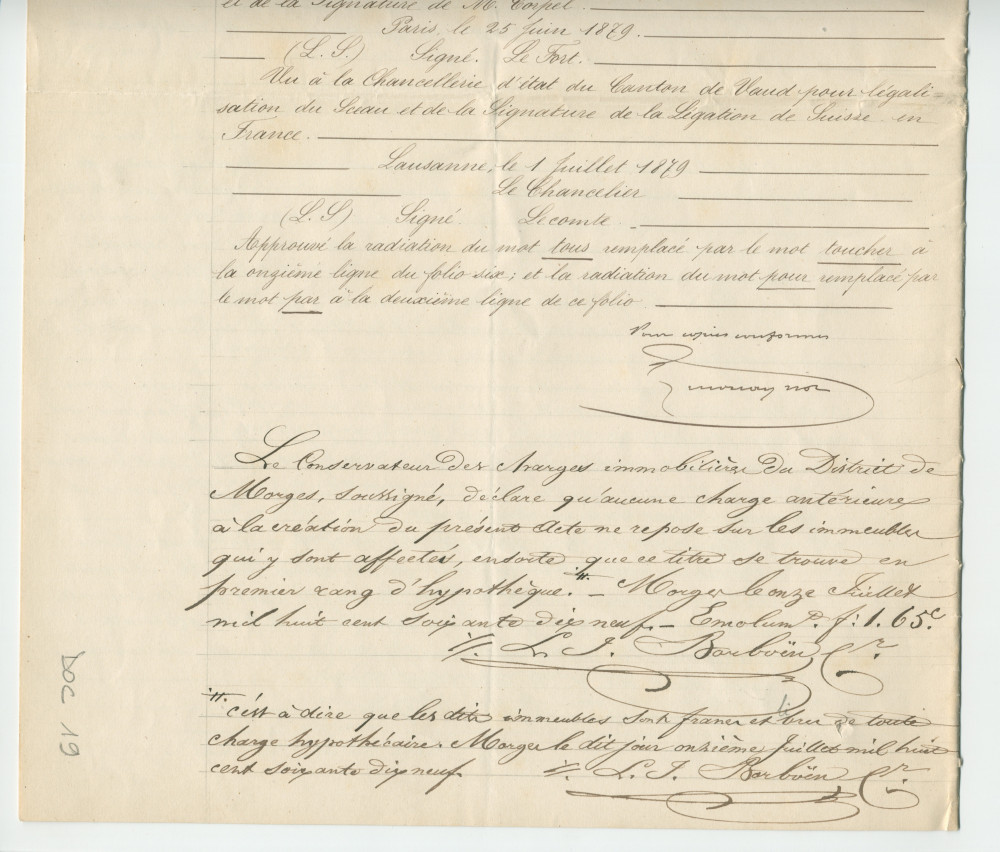 et de la Signature de M. Corpel.
Paris, le 25 Juin 1879.
(L. S.) Signé. Le Fort.
Vu à la Chancellerie d'état du Canton de Vaud pour légali=
sation du Sceau et de la Signature de la Légation de Suisse en
France.
Lausanne, le 1 Juillet 1879
Le Chancelier
(L. S) Signé. Lecomte.
Approuvé la radiation du mot tous remplacé par le mot toucher à
la onzième ligne du folio six; et la radiation du mot pour remplacé par
le mot par à la deuxième ligne de ce folio
Pour copies conformes
Le Conservateur des charges immobilières du District de
Morges, soussigné, déclare qu'aucune charge antérieure
à la création du présent acte ne repose sur les immeubles
qui y sont affectés, ensorte que ce titre se trouve en
premier rang d'hypothèque. - Morges le onze Juillet
mil huit cent soixante dix neuf. - Emolumt. f: 1. 65c.
L. J. Barboën
c'est à dire que les dits immeubles sont francs et de toute
charge hypothécaire. Morges le dit jour onzième Juillet mil huit
cent soixante dix neuf. L. J. Barboën
DOC 19